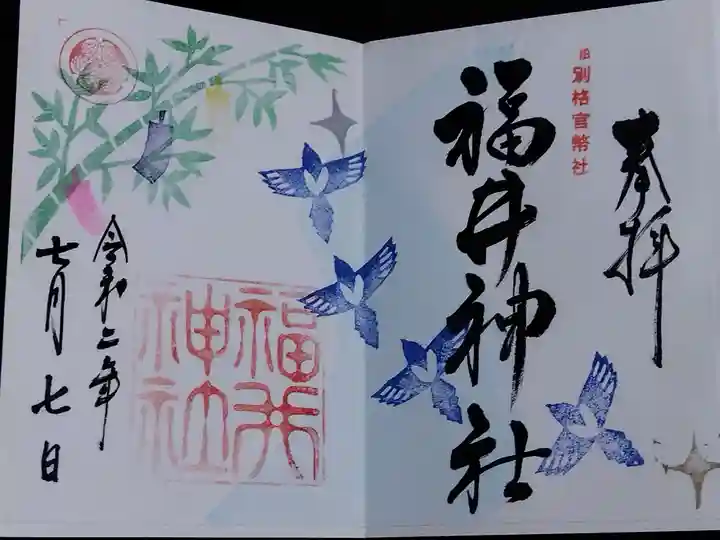 奉拝
旧別格官幣社
福井神社
福井
神社
令和二年
七月七日